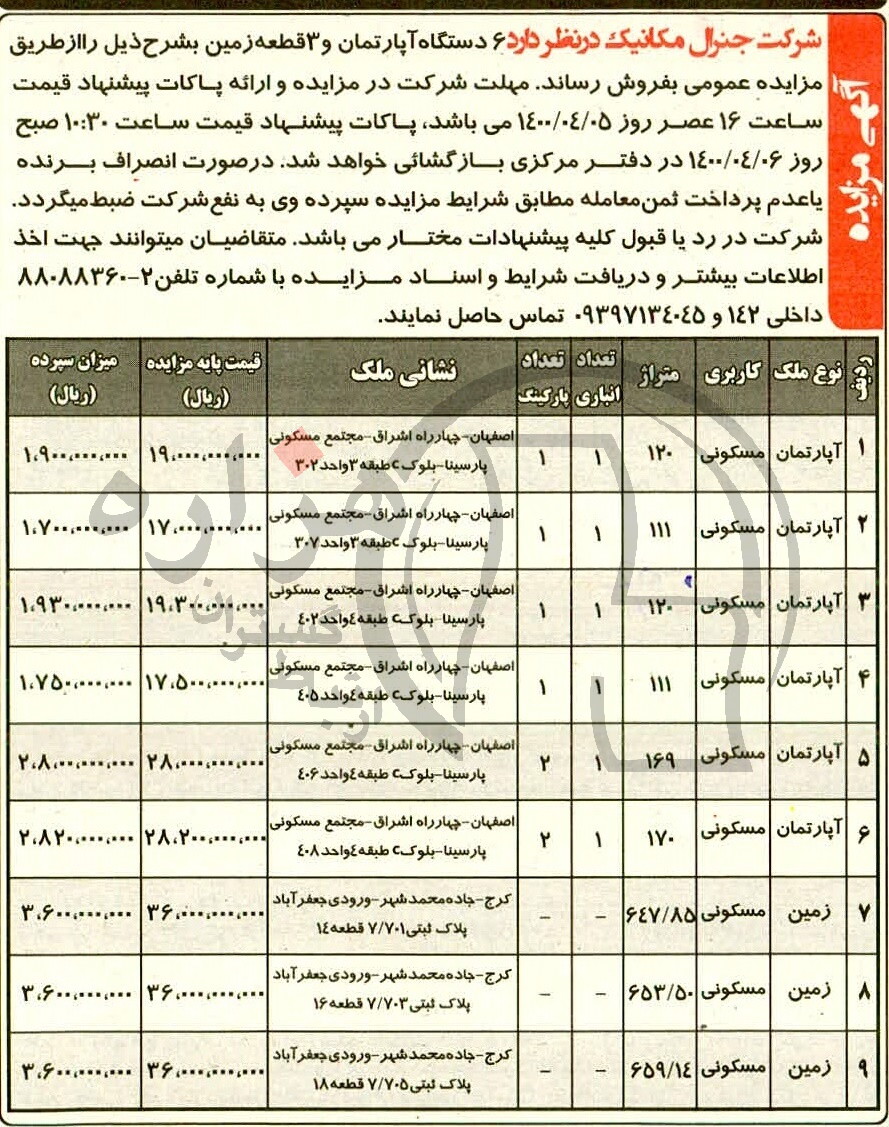 آگهی مزایده
شرکت جنرال مکانیک درنظر دارد ۶ دستگاه آپارتمان و ۳ قطعه زمین بشرح ذیل رااز طریق
مزایده عمومی بفروش رساند. مهلت شرکت در مزایده و ارائه پاکات پیشنهاد قیمت
ساعت ۱۶ عصر روز ۱۴۰۰/۰۴/۰۵ می باشد، پاکات پیشنهاد قیمت ساعت ۱۰:۳۰ صبح
روز ۱۴۰۰/۰۴/۰۶ در دفتر مرکزی بازگشائی خواهد شد. درصورت انصراف برنده
یاعدم پرداخت ثمن معامله مطابق شرایط مزایده سپرده وی به نفع شرکت ضبط میگردد.
شرکت در رد یا قبول کلیه پیشنهادات مختار می باشد. متقاضیان میتوانند جهت اخذ
اطلاعات بیشتر و دریافت شرایط و اسناد مزایده با شماره تلفن ۲-۸۸۰۸۸۳۶۰
داخلی ۱۴۲ و ۰۹۳۹۷۱۳۴۰۴۵ تماس حاصل نمایند.
ردیف نوع ملک کاربری متراژ تعداد انباری تعداد پارکینگ نشانی ملک قیمت پایه مزایده (ریال) میزان سپرده (ریال)
۱ آپارتمان مسکونی ۱۲۰ ۱ ۱ اصفهان-چهارراه اشراق-مجتمع مسکونی پارسینا-بلوک c طبقه ۳ واحد ۳۰۲ ۱۹،۰۰۰،۰۰۰،۰۰۰ ۱،۹۰۰،۰۰۰،۰۰۰
۲ آپارتمان مسکونی ۱۱۱ ۱ ۱ اصفهان-چهارراه اشراق-مجتمع مسکونی پارسینا-بلوک c طبقه ۳ واحد ۳۰۷ ۱۷،۰۰۰،۰۰۰،۰۰۰ ۱،۷۰۰،۰۰۰،۰۰۰
۳ آپارتمان مسکونی ۱۲۰ ۱ ۱ اصفهان-چهارراه اشراق-مجتمع مسکونی پارسینا-بلوک c طبقه ۴ واحد ۴۰۲ ۱۹،۳۰۰،۰۰۰،۰۰۰ ۱،۹۳۰،۰۰۰،۰۰۰
۴ آپارتمان مسکونی ۱۱۱ ۱ ۱ اصفهان-چهارراه اشراق-مجتمع مسکونی پارسینا-بلوک c طبقه ۴ واحد ۴۰۵ ۱۷،۵۰۰،۰۰۰،۰۰۰ ۱،۷۵۰،۰۰۰،۰۰۰
۵ آپارتمان مسکونی ۱۶۹ ۱ ۲ اصفهان-چهارراه اشراق-مجتمع مسکونی پارسینا-بلوک c طبقه ۴ واحد ۴۰۶ ۲۸،۰۰۰،۰۰۰،۰۰۰ ۲،۸۰۰،۰۰۰،۰۰۰
۶ آپارتمان مسکونی ۱۷۰ ۱ ۲ اصفهان-چهارراه اشراق-مجتمع مسکونی پارسینا-بلوک c طبقه ۴ واحد ۴۰۸ ۲۸،۲۰۰،۰۰۰،۰۰۰ ۲،۸۲۰،۰۰۰،۰۰۰
۷ زمین مسکونی ۶۴۷/۸۵ - - کرج-جاده محمدشهر-ورودی جعفرآباد پلاک ثبتی ۷/۷۰۱ قطعه ۱۴ ۳۶،۰۰۰،۰۰۰،۰۰۰ ۳،۶۰۰،۰۰۰،۰۰۰
۸ زمین مسکونی ۶۵۳/۵۰ - - کرج-جاده محمدشهر-ورودی جعفرآباد پلاک ثبتی ۷/۷۰۳ قطعه ۱۶ ۳۶،۰۰۰،۰۰۰،۰۰۰ ۳،۶۰۰،۰۰۰،۰۰۰
۹ زمین مسکونی ۶۵۹/۱۴ - - کرج-جاده محمدشهر-ورودی جعفرآباد پلاک ثبتی ۷/۷۰۵ قطعه ۱۸ ۳۶،۰۰۰،۰۰۰،۰۰۰ ۳،۶۰۰،۰۰۰،۰۰۰